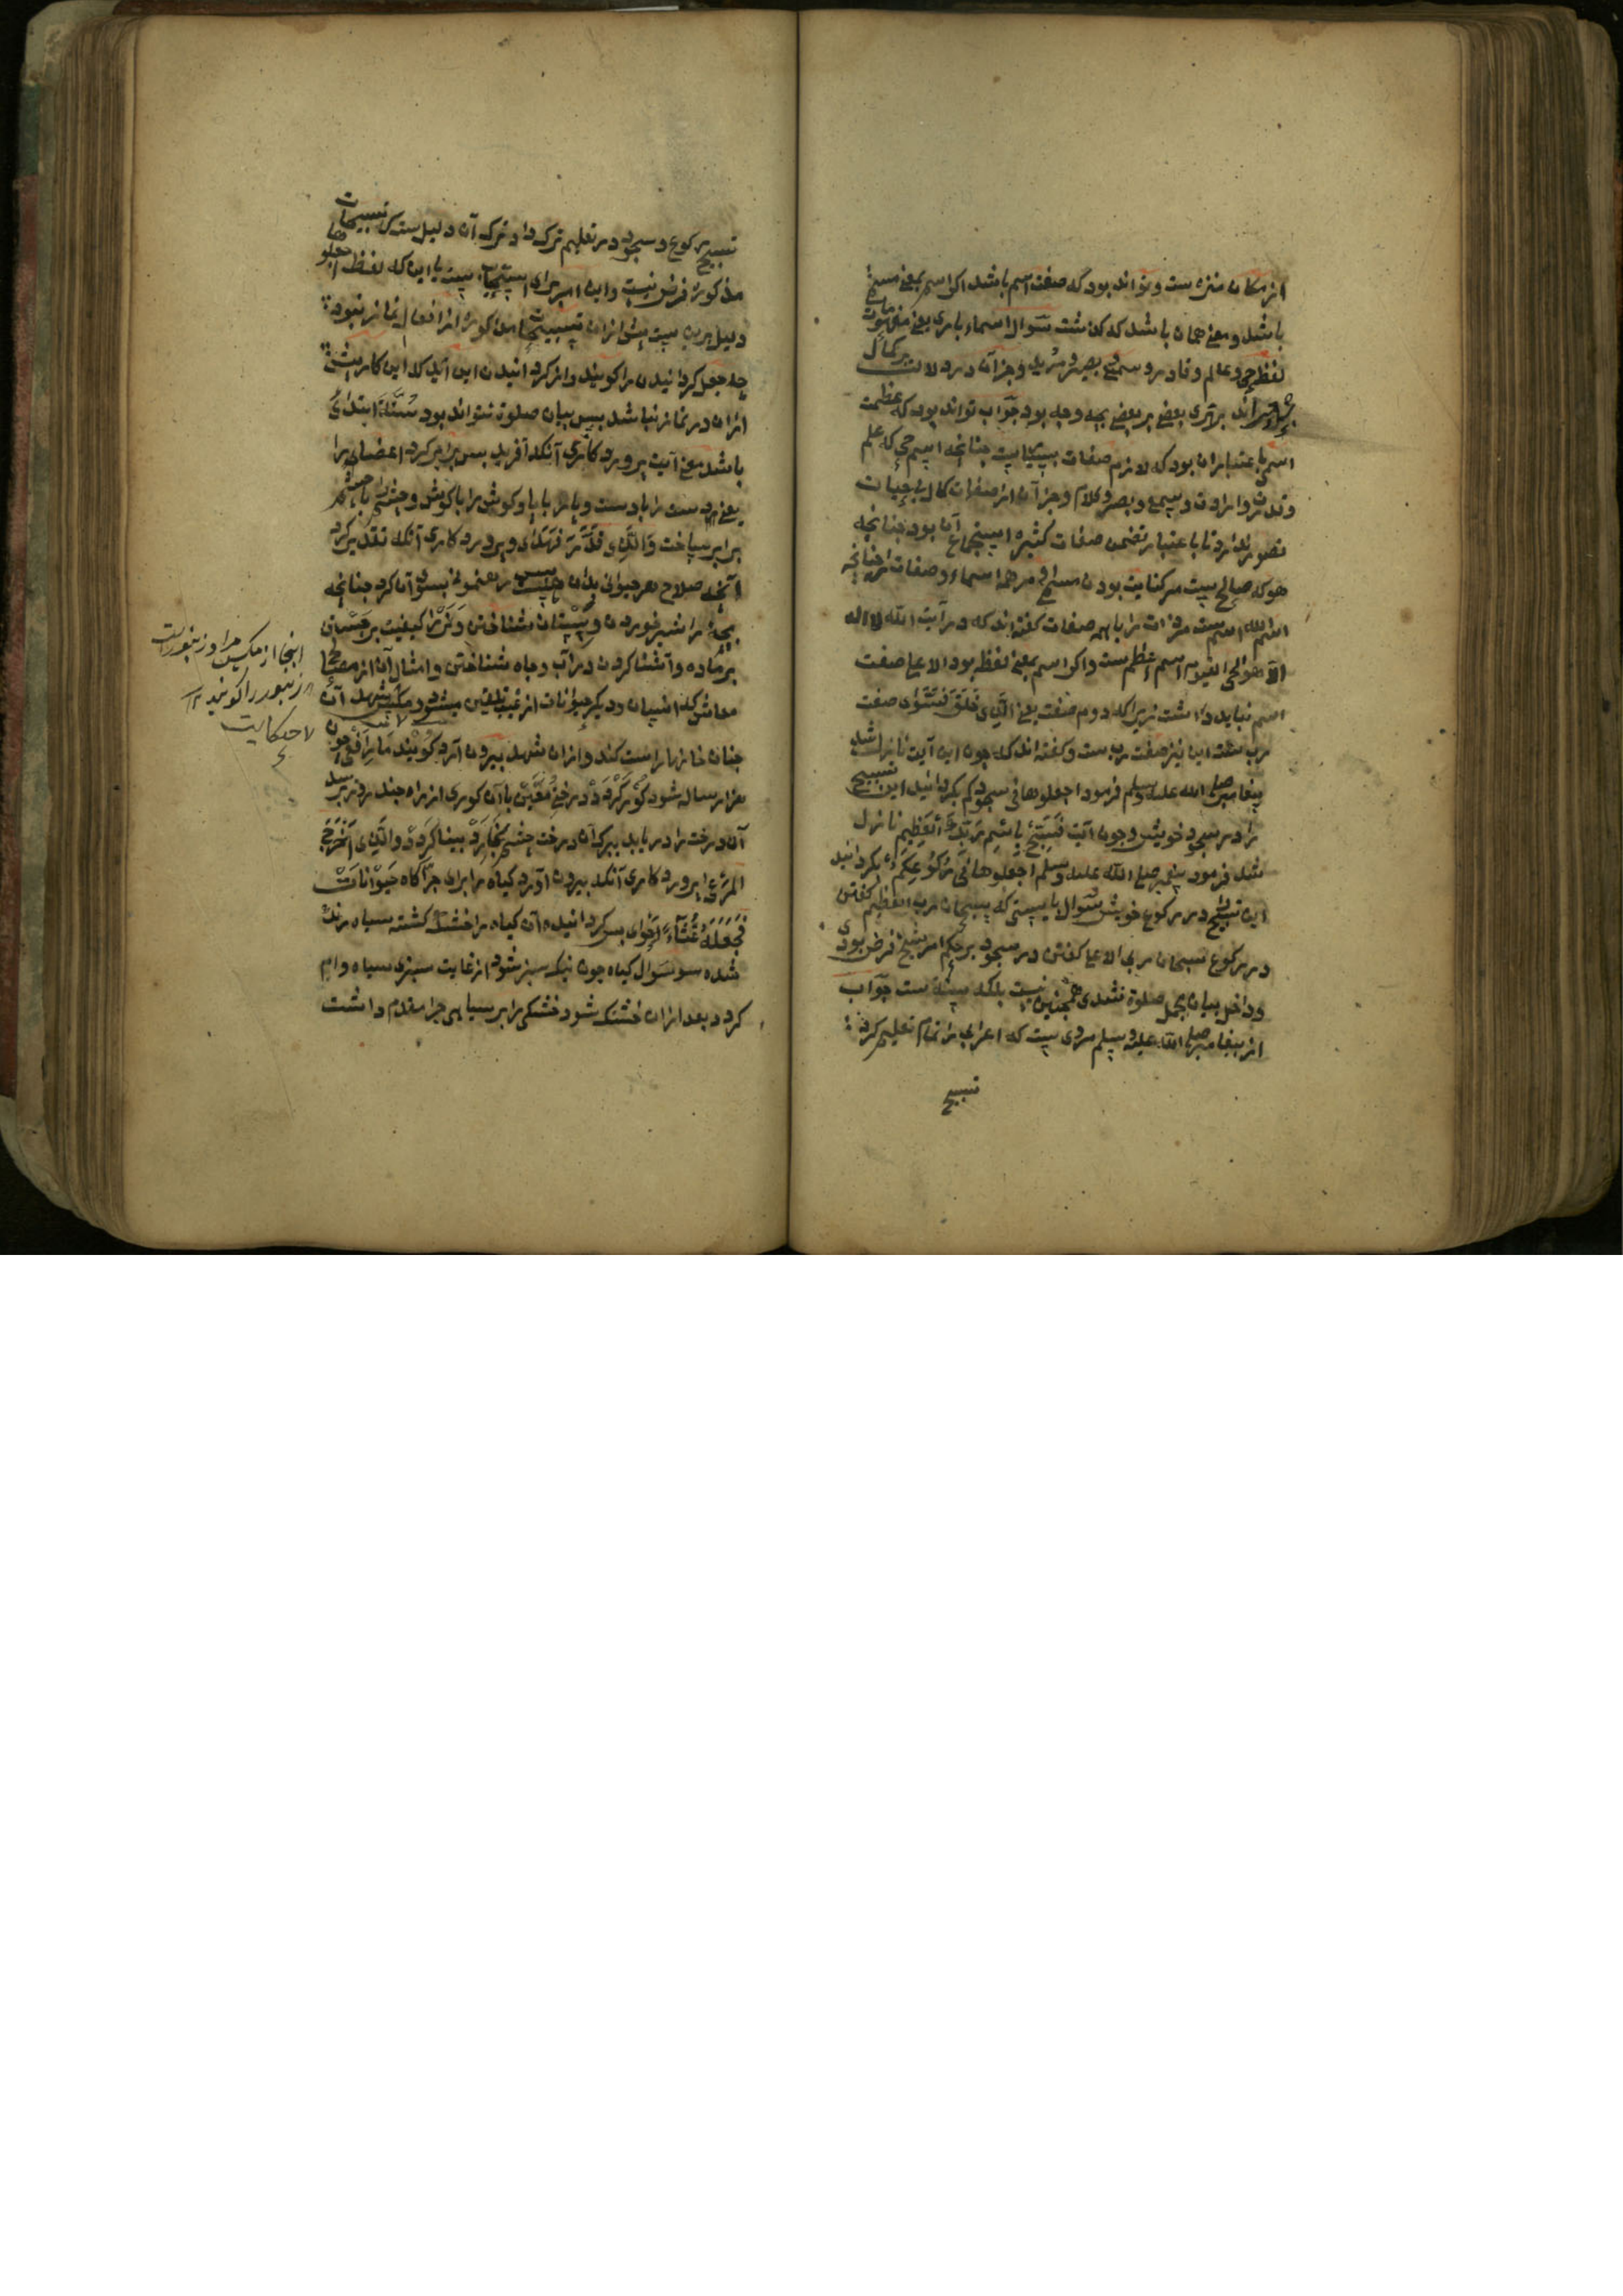 از مکان منزه ست و تواند بود که صفت اسم باشد اکر اسم بمعنی مسمی
باشد و معنی همان باشد که کذشت سوال اسماء باری یعنی
لفظ حی و عالم و قادر و سمیع و بصیر و مرید و جز آن در دلالت بر کمال
برابرند برتری بعضی بر بعضی بچه وجه بود جواب تواند بود که عظمت
اسمی باعتبار آن بود که لازم صفات بسیاست چنانچه اسم حی که علم
و قدرت و ارادت و سمع و بصر و کلام و جز آن از صفات کمال بی حیات
تصور ندارد تا باعتبار تضمن صفات کثیره استجماع آن بود چنانچه
هو که صالح ست مر کنایت بودن مر همه اسماء و صفات را چنانچه
اسم الله اسم ست مر ذات را با همه صفات کفته اند که در آیت الله لا اله
الا هو الحی القیوم اسم اعظم ست و اکر اسم بمعنی لفظ بود الاعلی صفت
اسم نباید داشت زیرا که دوم صفت یعنی الذی خلق فسوی صفت
رب ست این نیز صفت رب ست و کفته اند که چون این آیت نازل شد
پیغامبر صلی الله علیه وسلم فرمود اجعلوها فی سجودکم بکردانید این تسبیح
را در سجود خویش و چون آیت فسبح باسم ربک العظیم نازل
شد فرمود پیغمبر صلی الله علیه وسلم اجعلوها فی رکوعکم بکردانید
این تسبیح در رکوع خویش سوال بایستی که سبحان رب العظیم کفتن
در رکوع سبحان ربی الاعلی کفتن در سجود بحکم امر سبح فرض بودی
و داخل بیان مجمل صلوة شدی همچنین نیست بلکه سنة ست جواب
از پیغامبر صلی الله علیه وسلم مروی ست که اعرابی را تمام تعلیم کرد
تسبیح
تسبیح رکوع و سجود در تعلیم ترک داد ترک آن دلیل ست که تسبیحات
مذکوره فرض نیست و این امر برای استحباب ست با این که لفظ اجعلوها
دلیل برین ست پیش ازان تسبیحات مذکوره از افعال نماز نبود
چه جعل کردانیدن را کویند و از کردانیدن این آید که این کار پیش
ازان در نماز نباشد پس بیان صلوة نتواند بود سنة ابتدای
باشد معنی آیت پروردکاری آنکه آفرید پس برابر کرد اعضای را
یعنی دست را با دست و پا را با پا و کوش را با کوش و چشم را با چشم
برابر ساخت والذی قدر فهدی و پروردکاری آنکه تقدیر کرد
آنچه صلاح هر حیوانی بدان ست پس رهنمونی بسوی آن کرد چنانچه
بچه را شیر خوردن و پستان شناختن و نر را کیفیت بر جستن
بر ماده و آشنا کردن در آب و چاه شناختن و امثال آن از مصالح
معاش که انسان و دیکر حیوانات از غیب تلقین میشود مکس شهد آن
چنان خانها راست کند و ازان شهد بیرون آرد کویند مار افعی چون
هزار ساله شود کور کردد درختی معین با آن کوری از راه چند روز برسد
آن درخت را دریابد ببرک آن درخت چشم بخارد بینا کردد والذی اخرج
المرعی پروردکاری آنکه بیرون آورد کیاه را برای چراکاه حیوانات
فجعله غثاء احوی پس کردانیده آن کیاه را خشک کشته سیاه رنک
شده سوال کیاه چون نیک سبز شود از غایت سبزی سیاه وام
کردد بعد ازان خشک شود خشکی را بر سیاهی چرا مقدم داشت
اینجا از مکس مراد زنبورست
زنبور را کویند ۱۲
حکایت